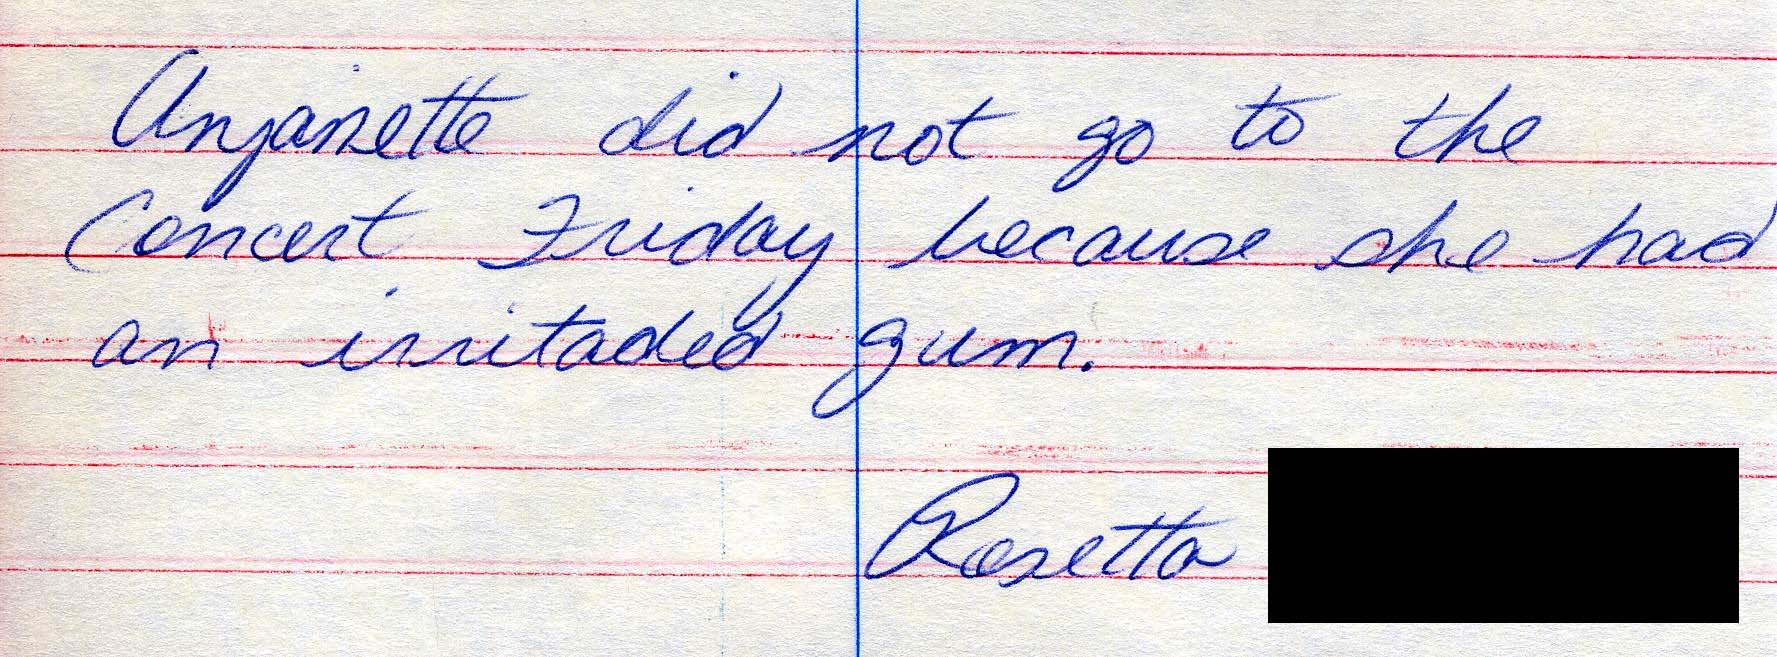 Anjanette did not go to the
Concert Friday because she had
an irritaded gum.
Rosetta